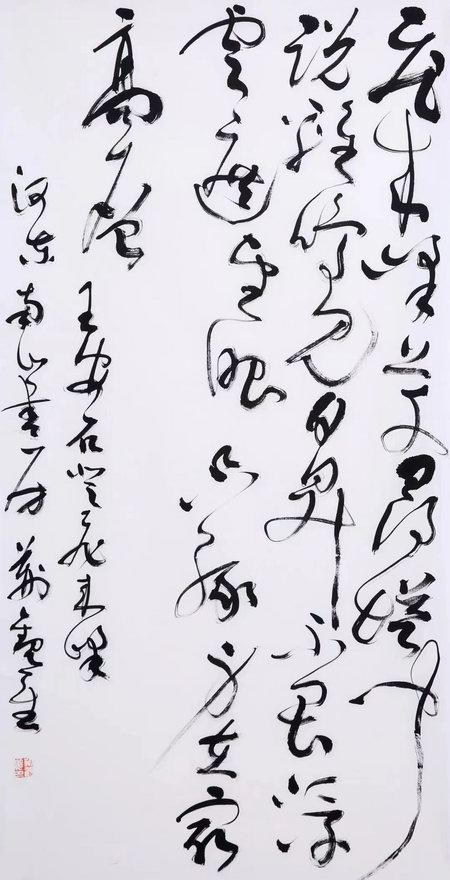 飞来峰上千寻塔闻
说鸡鸣见日昇不畏浮
雲遮望眼只缘身在最
高层
王安石登飞来峰
河东南山书房荆生